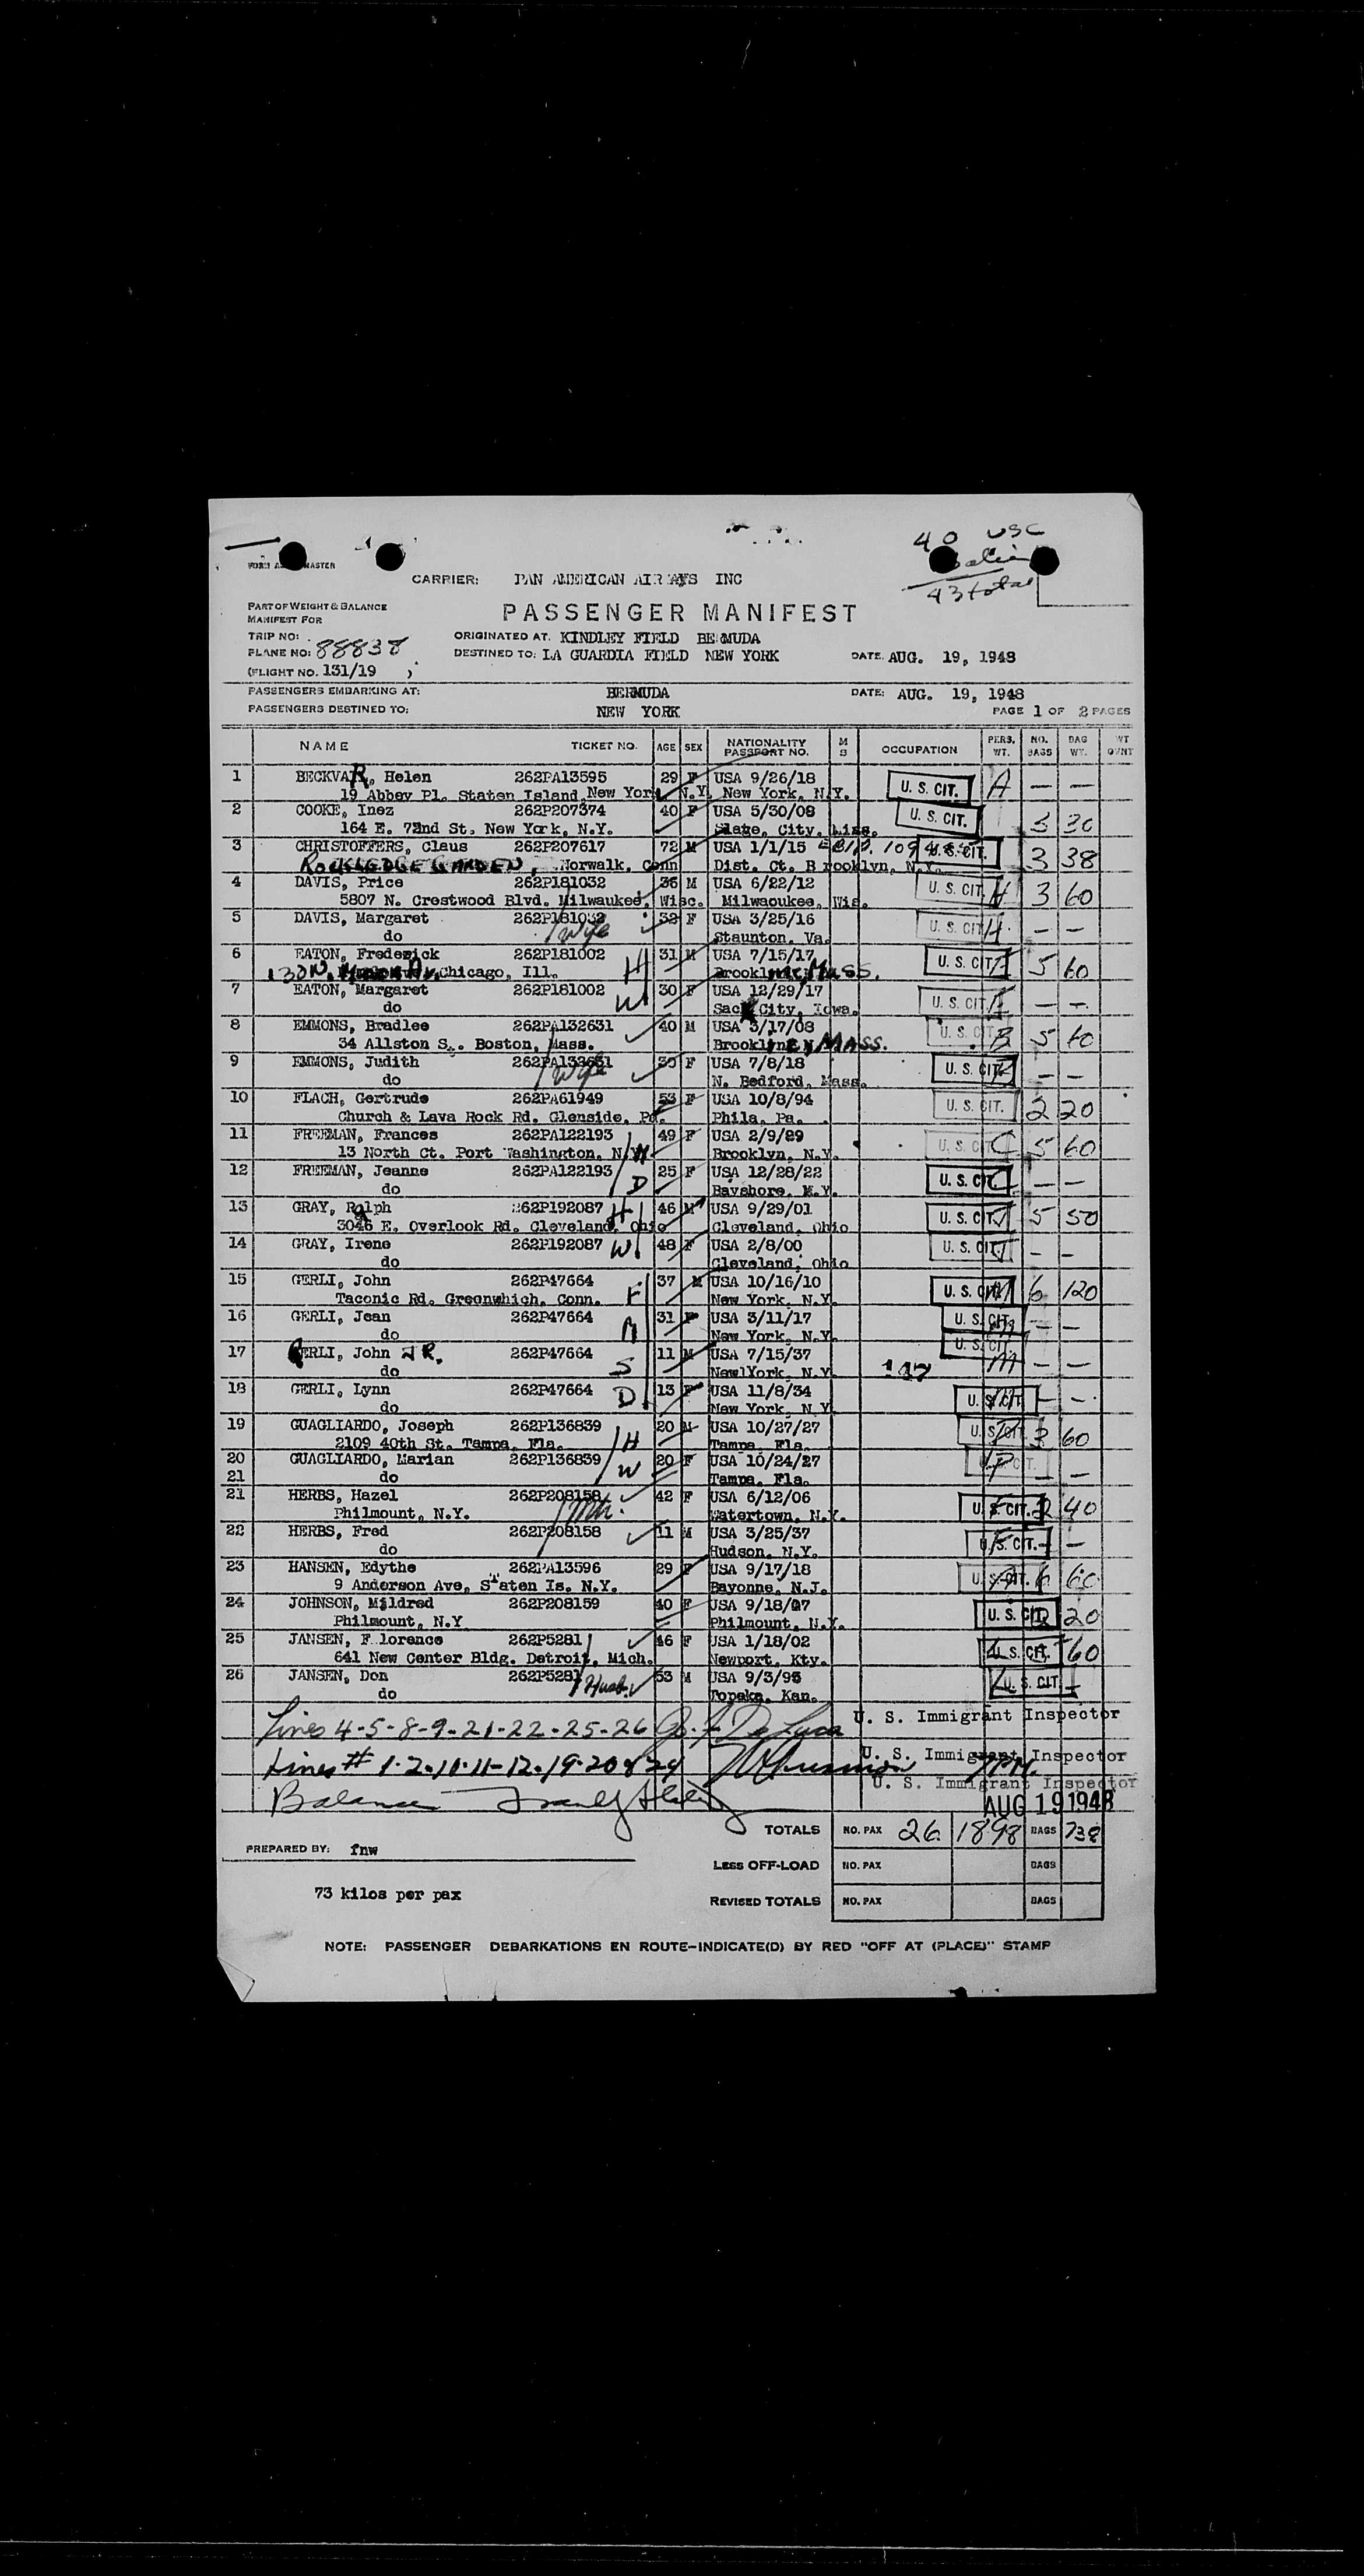 40 USC
43 total
CARRIER: PAN AMERICAN AIRWAYS INC
PART OF WEIGHT & BALANCE
MANIFEST FOR
PASSENGER MANIFEST
TRIP NO:
ORIGINATED AT. KINDLEY FIELD BERMUDA
PLANE NO: 88838
DESTINED TO: LA GUARDIA FIELD NEW YORK DATE. AUG. 19, 1948
(FLIGHT NO. 131/19 )
PASSENGERS EMBARKING AT: BERMUDA DATE: AUG. 19, 1948
PASSENGERS DESTINED TO: NEW YORK PAGE 1 OF 2 PAGES
NAME TICKET NO. AGE SEX NATIONALITY PASSPORT NO. M S OCCUPATION PERS. WT. NO. BAGS BAG WT. WT OVNT
1 BECKVAR, Helen 262PA13595 29 F USA 9/26/18 U. S. CIT. A — —
19 Abbey Pl. Staten Island, New York, N.Y. New York, N.Y.
2 COOKE, Inez 262P207374 40 F USA 5/30/08 U. S. CIT. 3 30
164 E. 72nd St. New York, N.Y. Slage, City, Miss.
3 CHRISTOFFERS, Claus 262P207617 72 M USA 1/1/15 U. S. CIT. 3 38
ROCKLEDGE GARDEN, Norwalk, Conn Dist. Ct. B rooklyn, N.Y.
4 DAVIS, Price 262P181032 36 M USA 6/22/12 U. S. CIT. H 3 60
5807 N. Crestwood Blvd. Milwaukee, Wisc. Milwaoukee, Wis.
5 DAVIS, Margaret 262P181032 Wife 32 F USA 3/25/16 U. S. CIT. H — —
do Staunton, Va.
6 EATON, Frederick 262P181002 H 31 M USA 7/15/17 U. S. CIT. I 5 60
130 N. Chicago, Ill. Brookline, Mass.
7 EATON, Margaret 262P181002 W 30 F USA 12/29/17 U. S. CIT. I — —
do Sac City, Iowa.
8 EMMONS, Bradlee 262PA132631 40 M USA 3/17/08 U. S. CIT. B 5 40
34 Allston S.. Boston, Mass. Brookline, MASS.
9 EMMONS, Judith 262PA132631 Wife 30 F USA 7/8/18 U. S. CIT. B — —
do N. Bedford, Mass.
10 FLACH, Gertrude 262PA61949 53 F USA 10/8/94 U. S. CIT. 2 20
Church & Lava Rock Rd. Glenside, Pa. Phila, Pa.
11 FREEMAN, Frances 262PA122193 M 49 F USA 2/9/99 U. S. CIT. C 5 60
13 North Ct. Port Washington, N.Y. Brooklyn, N.Y.
12 FREEMAN, Jeanne 262PA122193 D 25 F USA 12/28/22 U. S. CIT. C — —
do Bayshore, N.Y.
13 GRAY, Ralph 262P192087 H 46 M USA 9/29/01 U. S. CIT. J 5 50
3046 E. Overlook Rd. Cleveland, Ohio Cleveland, Ohio
14 GRAY, Irene 262P192087 W 48 F USA 2/8/00 U. S. CIT. J — —
do Cleveland, Ohio
15 GERLI, John 262P47664 F 37 M USA 10/16/10 U. S. CIT. M 6 120
Taconic Rd. Greenwhich, Conn. New York, N.Y.
16 GERLI, Jean 262P47664 M 31 F USA 3/11/17 U. S. CIT. M — —
do New York, N.Y.
17 GERLI, John JR. 262P47664 S 11 M USA 7/15/37 U. S. CIT. M — —
do New York, N.Y.
18 GERLI, Lynn 262P47664 D 13 F USA 11/8/34 U. S. CIT. M — —
do New York, N.Y.
19 GUAGLIARDO, Joseph 262P136839 H 20 M USA 10/27/27 U. S. CIT. P 3 60
2109 40th St. Tampa, Fla. Tampa, Fla.
20 GUAGLIARDO, Marian 262P136839 W 20 F USA 10/24/27 U. S. CIT. P — —
21 do Tampa, Fla.
21 HERBS, Hazel 262P208158 Mth. 42 F USA 6/12/06 U. S. CIT. F 2 40
Philmount, N.Y. Watertown, N.Y.
22 HERBS, Fred 262P208158 11 M USA 3/25/37 U. S. CIT. F — —
do Hudson, N.Y.
23 HANSEN, Edythe 262PA13596 29 F USA 9/17/18 U. S. CIT. A 6 60
9 Anderson Ave, Staten Is. N.Y. Bayonne, N.J.
24 JOHNSON, Mildred 262P208159 40 F USA 9/18/07 U. S. CIT. 2 20
Philmount, N.Y Philmount, N.Y.
25 JANSEN, F lorence 262P5281 46 F USA 1/18/02 U. S. CIT. L 4 60
641 New Center Bldg. Detroit, Mich. Newport, Kty.
26 JANSEN, Don 262P5281 Husb. 53 M USA 9/3/95 U. S. CIT. L —
do Topeka, Kan.
Lines 4-5-8-9-21-22-25-26 De Luca U. S. Immigrant Inspector
Lines # 1-2-10-11-12-19-20 & 24 U. S. Immigrant Inspector
Balance U. S. Immigrant Inspector
AUG 19 1948
TOTALS NO. PAX 26 1898 BAGS 738
PREPARED BY: fnw
LESS OFF-LOAD NO. PAX BAGS
73 kilos per pax
REVISED TOTALS NO. PAX BAGS
NOTE: PASSENGER DEBARKATIONS EN ROUTE-INDICATE(D) BY RED "OFF AT (PLACE)" STAMP